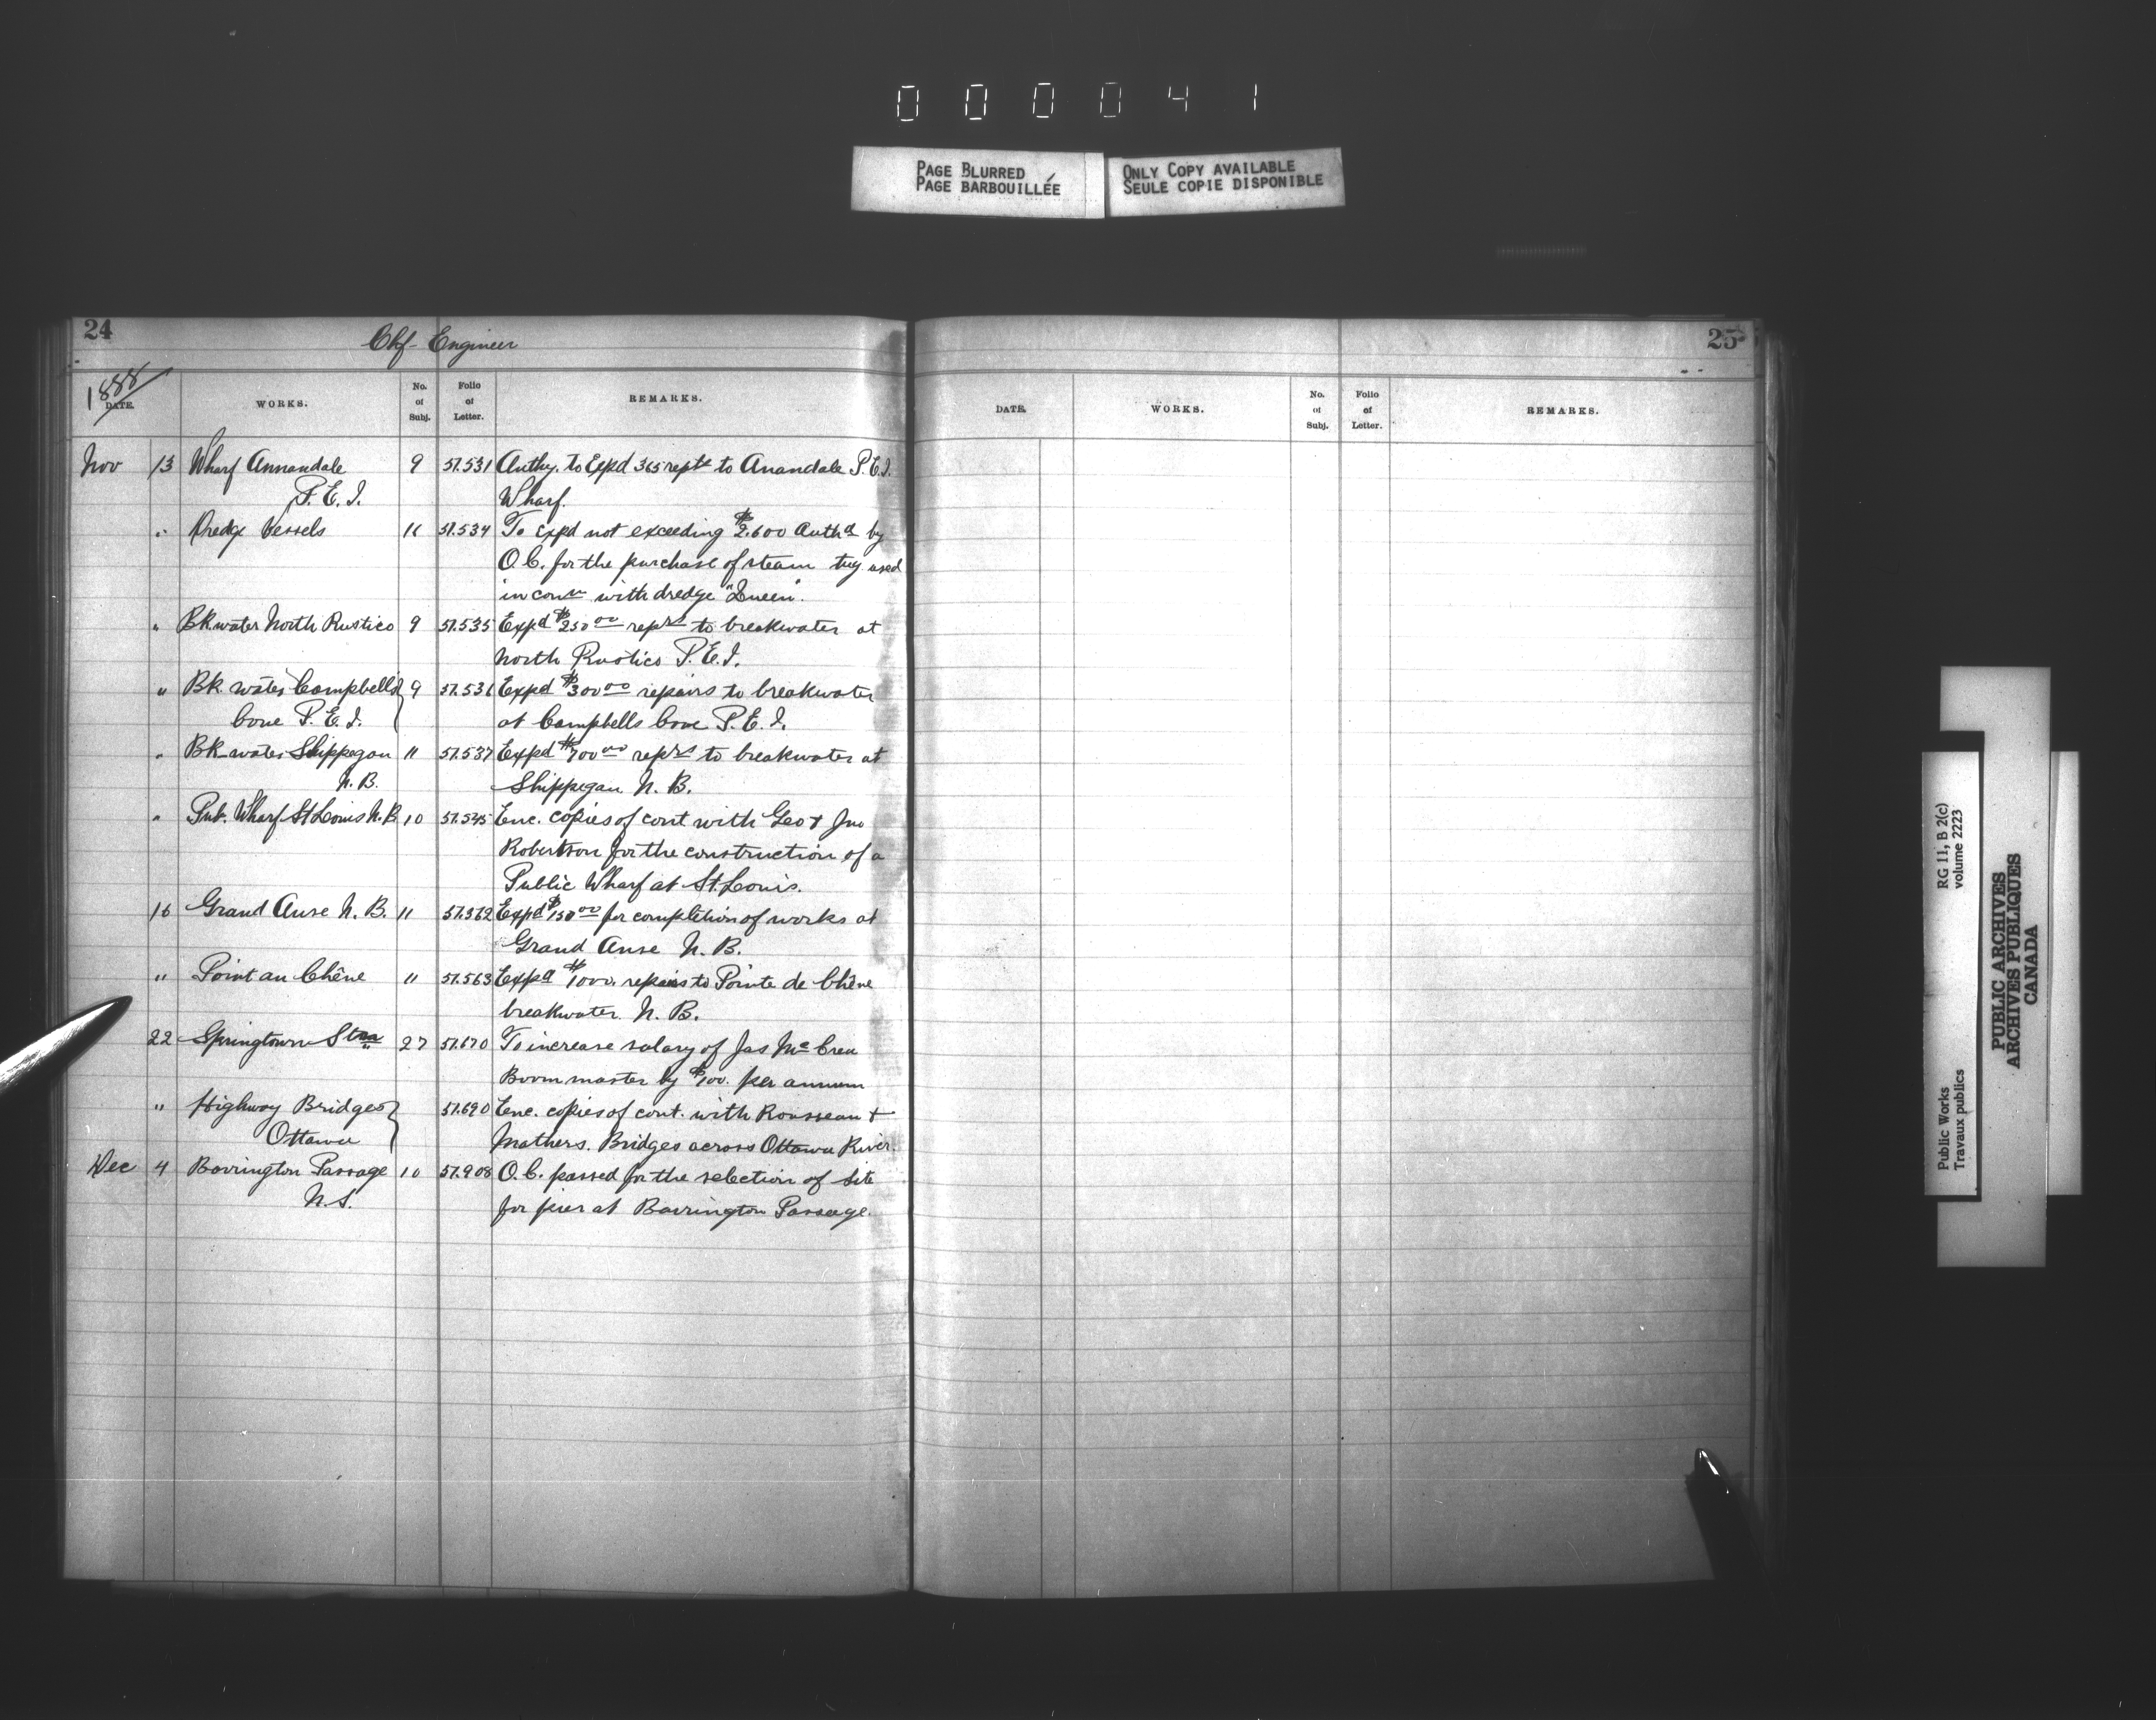 000041
PAGE BLURRED
PAGE BARBOUILLÉE
ONLY COPY AVAILABLE
SEULE COPIE DISPONIBLE
24
Chf Engineer
1888
DATE. WORKS. No. of Subj. Folio of Letter. REMARKS.
Nov 13 Wharf Annandale 9 57.531 Authy. to Expd 365 reprs to Anandale P.E.I.
P.E.I. Wharf.
" Dredge Vessels 57.534 To Expd not exceeding $2.600 Authd by
O.C. for the purchase of steam tug used
in conn with dredge "Queen".
" Bk water North Rustico 9 57.535 Expd $250 00 reprs to breakwater at
North Rustico P.E.I.
" Bk water Campbells 9 Expd $300 00 repairs to breakwater
Cove P.E.I. at Campbells Cove P.E.I.
" Bk water Shippegan 11 57.537 Expd $700 00 reprs to breakwater at
N.B. Shippegan N.B.
" Pub. Wharf St Louis N.B 10 57.545 Enc. copies of cont with Geo & Jno
Robertson for the construction of a
Public Wharf at St. Louis.
16 Grand Anse N.B. 11 Expd $150 00 for completion of works at
Grand Anse N.B.
" Point au Chêne 11 57.563 Expd $1000. repairs to Pointe de Chêne
breakwater N.B.
22 Springtown Stn 27 57.670 To increase salary of Jas McCrea
Boom master by $100. per annum
" Highway Bridges 57.690 Enc. copies of cont. with Rousseau &
Ottawa Mathers. Bridges across Ottawa River.
Dec 4 Barrington Passage 10 57.908 O.C. passed for the selection of site
N.S. for pier at Barrington Passage.
25
DATE. WORKS. No. of Subj. Folio of Letter. REMARKS.
RG 11, B 2(c)
volume 2223
Public Works
Travaux publics
PUBLIC ARCHIVES
ARCHIVES PUBLIQUES
CANADA